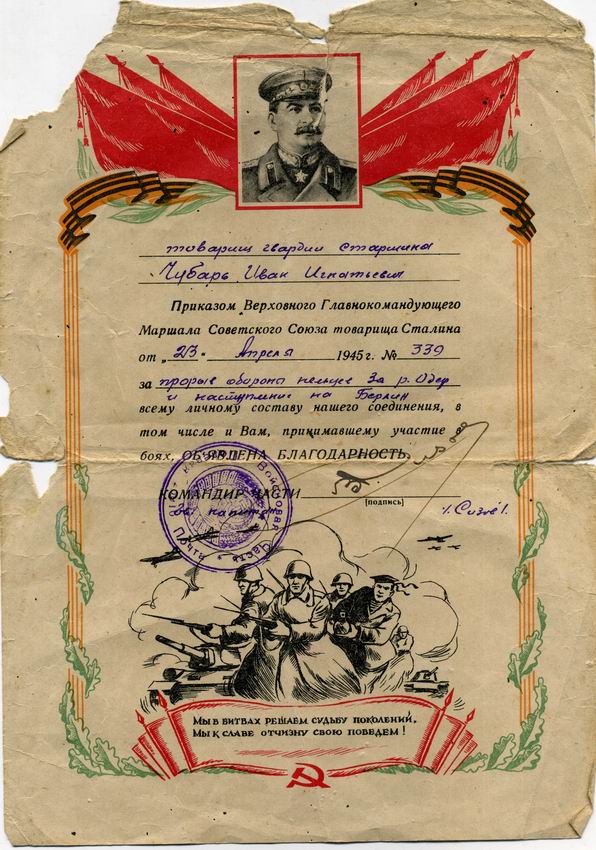 товарищ гвардии старшина
Чубарь Иван Игнатьевич
Приказом Верховного Главнокомандующего
Маршала Советского Союза товарища Сталина
от „23“ Апреля 1945 г. № 339
за прорыв обороны немцев за р. Одер
и наступление на Берлин
всему личному составу нашего соединения, в
том числе и Вам, принимавшему участие в
боях, ОБ'ЯВЛЕНА БЛАГОДАРНОСТЬ.
КОМАНДИР ЧАСТИ
(подпись)
гв. капитан
Войсковая Часть
Почта
МЫ В БИТВАХ РЕШАЕМ СУДЬБУ ПОКОЛЕНИЙ,
МЫ К СЛАВЕ ОТЧИЗНУ СВОЮ ПОВЕДЕМ!